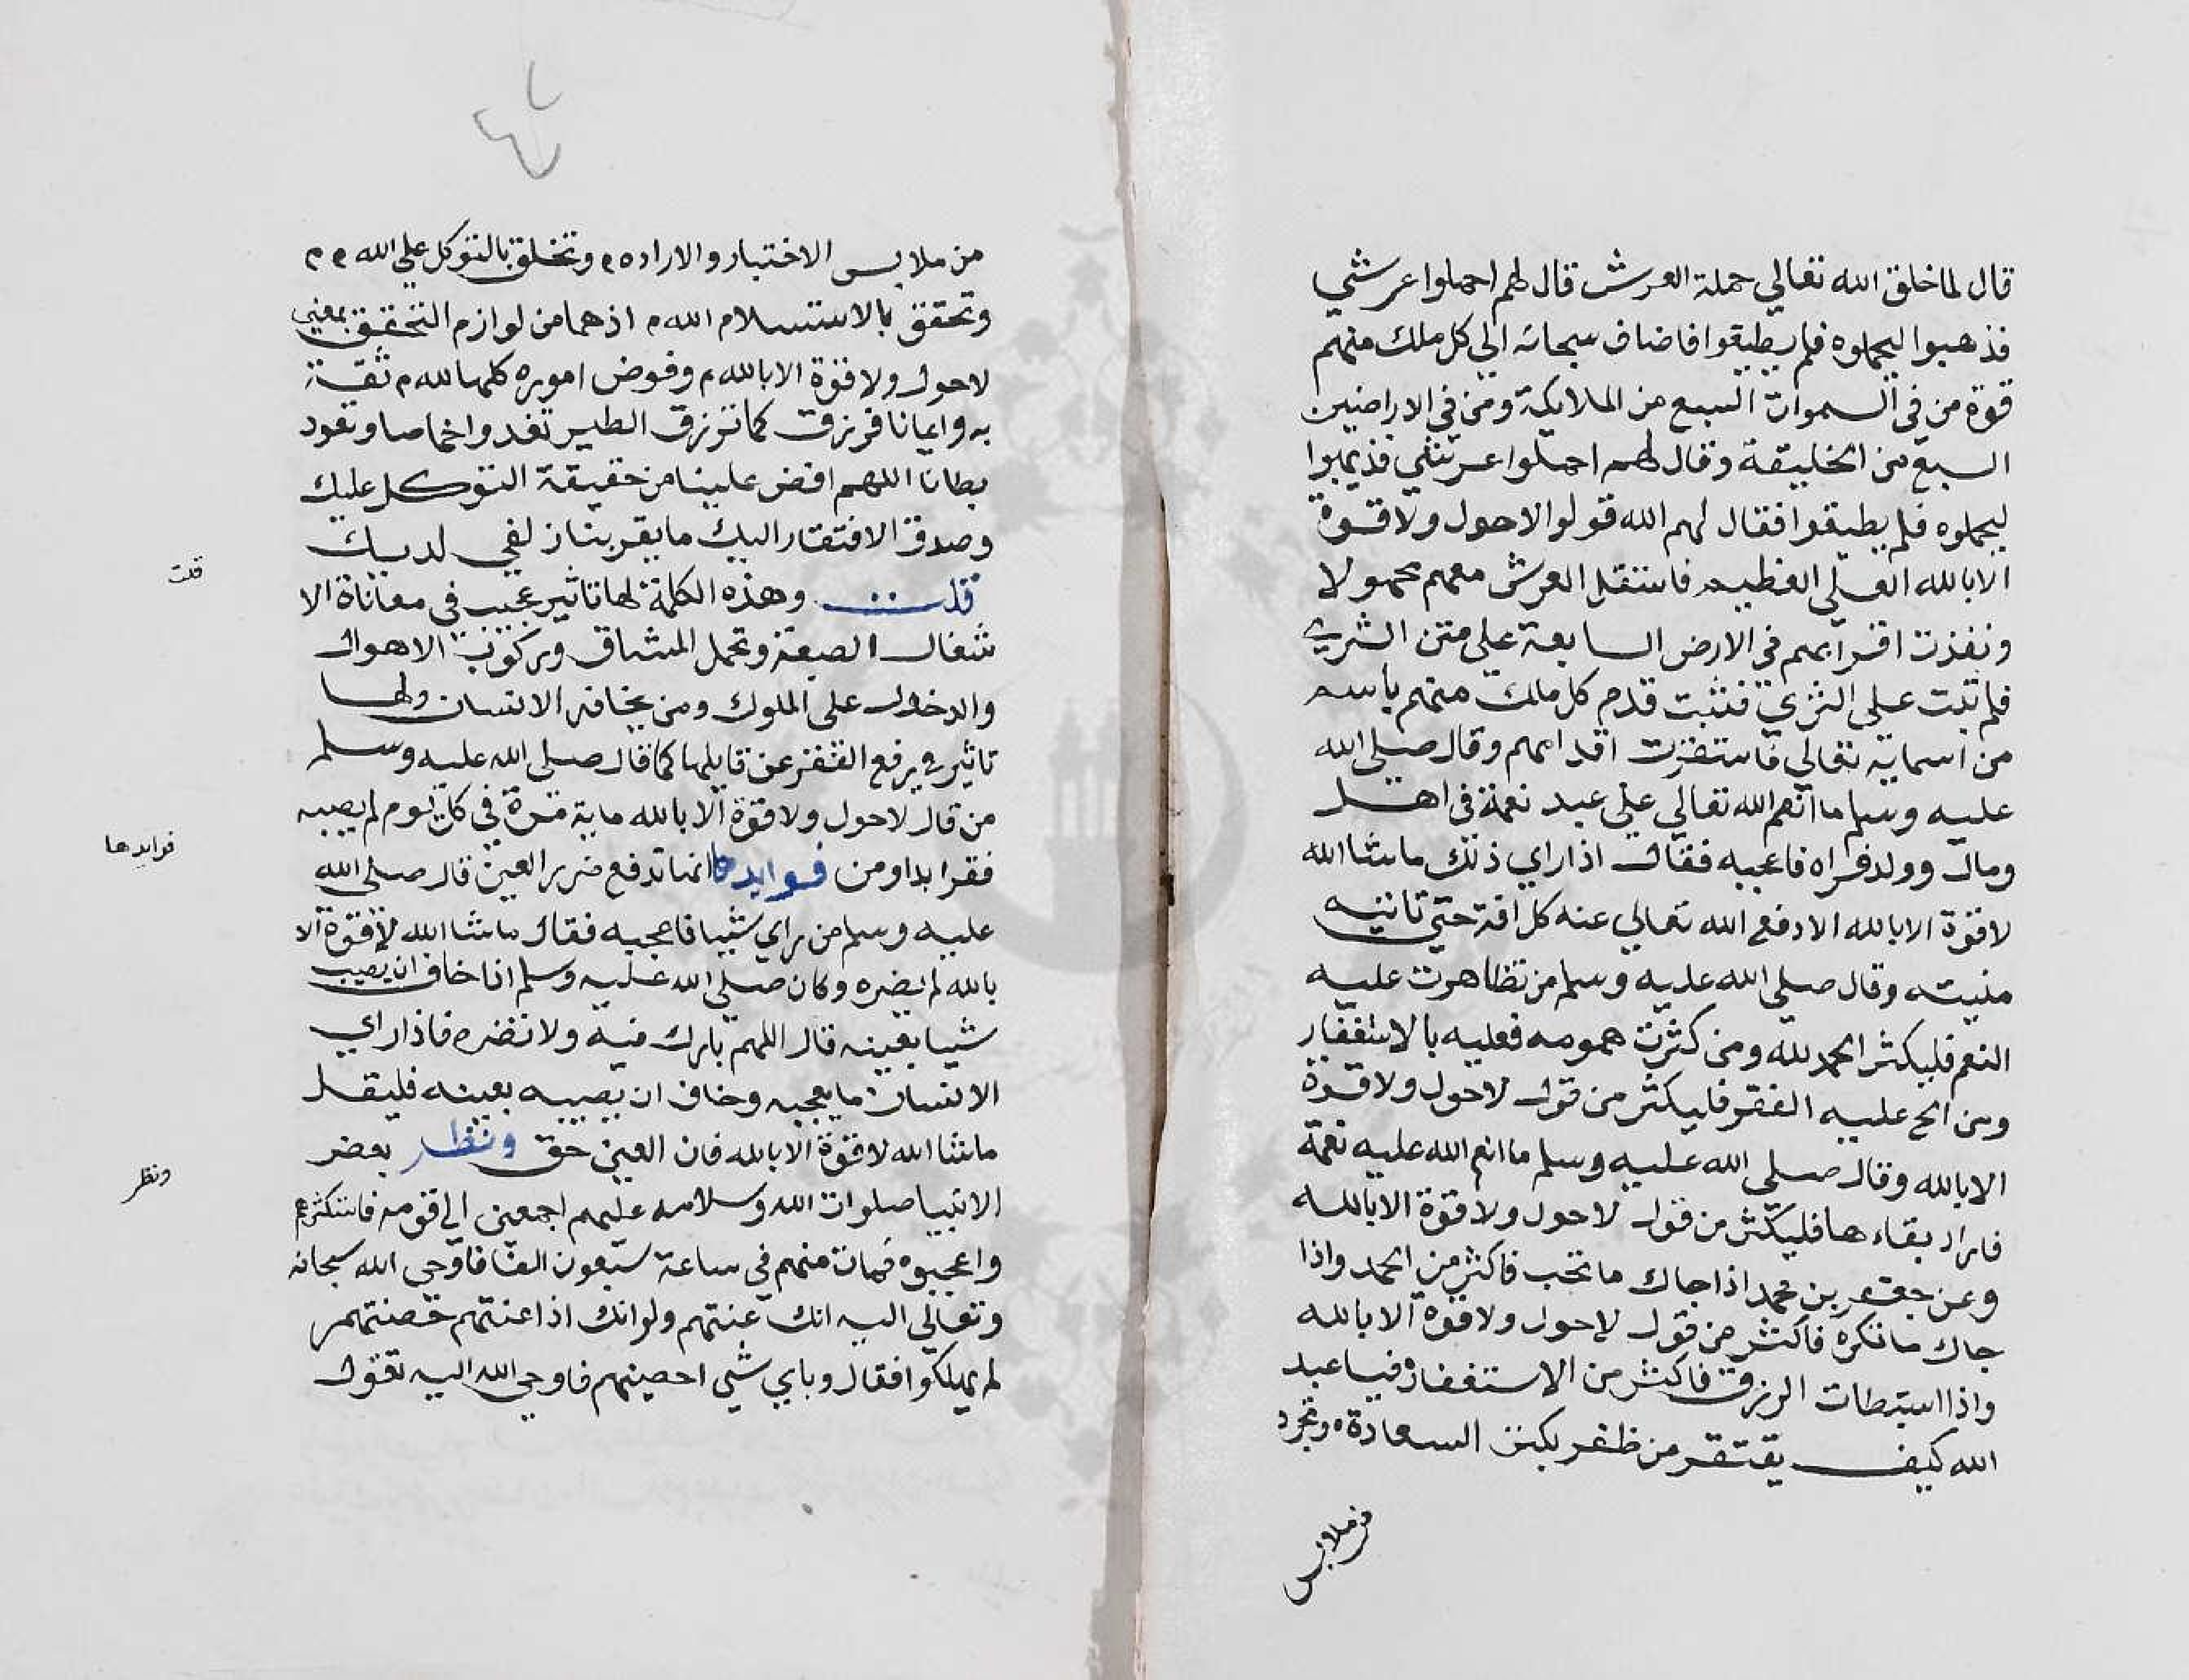 قال لما خلق الله تعالي حملة العرش قال لهم احملوا عرشي
فذهبوا ليحملوه فلم يطيقوا فاضاف سبحانه الي كل ملك منهم
قوة من في السموات السبع من الملايكة ومن في الاراضين
السبع من الخليقة وقال لهم احملوا عرشي فذهبوا
ليحملوه فلم يطيقوا فقال لهم الله قولوا لاحول ولا قوة
الا بالله العلي العظيم فاستقل العرش معهم محمولا
ونفذت اقدامهم في الارض السابعة علي متن الثري
فلم تثبت علي الثري فثبت قدم كل ملك منهم باسم
من اسمايه تعالي فاستقرت اقدامهم وقال صلي الله
عليه وسلم ما انعم الله تعالي علي عبد نعمة في اهل
ومال وولد فراه فاعجبه فقال اذا راي ذلك ما شا الله
لا قوة الا بالله الا دفع الله تعالي عنه كل افة حتي تاتيه
منيته وقال صلي الله عليه وسلم من تظاهرت عليه
النعم فليكثر الحمد لله ومن كثرت همومه فعليه بالاستغفار
ومن الح عليه الفقر فليكثر من قول لاحول ولا قوة
الا بالله وقال صلي الله عليه وسلم ما انعم الله عليه نعمة
فاراد بقاء ها فليكثر من قول لاحول ولا قوة الا بالله
وعن جعفر بن محمد اذا جاك ما تحب فاكثر من الحمد واذا
جاك ما تكره فاكثر من قول لاحول ولا قوة الا بالله
واذا استبطات الرزق فاكثر من الاستغفار فيا عبد
الله كيف يفتقر من ظفر بكنز السعادة وتجرد
من ملابس
من ملابس الاختيار والاراده وتخلق بالتوكل علي الله
وتحقق بالاستسلام الله اذ هما من لوازم التحقق بمعني
لاحول ولا قوة الا بالله وفوض اموره كلها لله ثقة
به وايمانا فرزق كما ترزق الطير تغدوا خماصا وتعود
بطانا اللهم افض علينا من حقيقة التوكل عليك
وصدق الافتقار اليك ما يقربنا زلفي لديك
قلت وهذه الكلمة لها تاثير عجيب في معاناة الا
شغال الصعبة وتحمل المشاق وركوب الاهوال
والدخول علي الملوك ومن يخافه الانسان ولها
تاثير في رفع الفقر عن قايلها كما قال صلي الله عليه وسلم
من قال لاحول ولا قوة الا بالله ماية مرة في كل يوم لم يصبه
فقر ابدا ومن فوايدها انها تدفع ضرر العين قال صلي الله
عليه وسلم من راي شيا فاعجبه فقال ما شا الله لا قوة الا
بالله لم يضره وكان صلي الله عليه وسلم اذا خاف ان يصيب
شيا بعينه قال اللهم بارك فيه ولا تضره فاذا راي
الانسان ما يعجبه وخاف ان يصيبه بعينه فليقل
ما شا الله لا قوة الا بالله فان العين حق ونظر بعض
الانبيا صلوات الله وسلامه عليهم اجمعين الي قومه فاستكثرهم
واعجبوه فمات منهم في ساعة سبعون الفا فاوحي الله سبحانه
وتعالي اليه انك عنتهم ولو انك اذا عنتهم حصنتهم
لم يهلكوا فقال وباي شي احصينهم فاوحي الله اليه تقول
قلت
فوايدها
ونظر